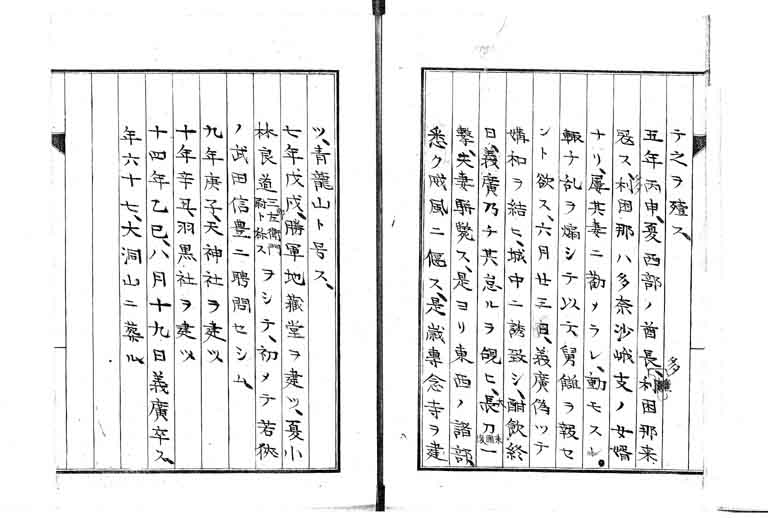 テ之ヲ殪ス、
五年丙申、夏西部ノ酋長、利因那来
冦ス、利因那ハ多奈沙峨支ノ女婿
ナリ、屡其妻ニ勸メラレ、動モスレ
輙チ乱ヲ煽シテ以テ舅讎ヲ報セ
ント欲ス、六月廿三日、義廣偽ツテ
媾和ヲ結ヒ、城中ニ誘致シ、酣飲終
日、義廣乃チ其怠ルヲ覘ヒ、長刀一
撃、夫妻斬斃ス、是ヨリ東西ノ諸部
悉ク威風ニ偃ス、是歳專念寺ヲ建
ツ、青龍山ト号ス、
七年戊戌、勝軍地藏堂ヲ建ツ、夏小
林良道三左衛門尉ト称スヲシテ、初メテ若狹
ノ武田信豊ニ聘問セシム、
九年庚子、天神社ヲ建ツ
十年辛丑、羽黒社ヲ建ツ
十四年乙巳、八月十九日義廣卒ス、
年六十七、大洞山ニ葬ル